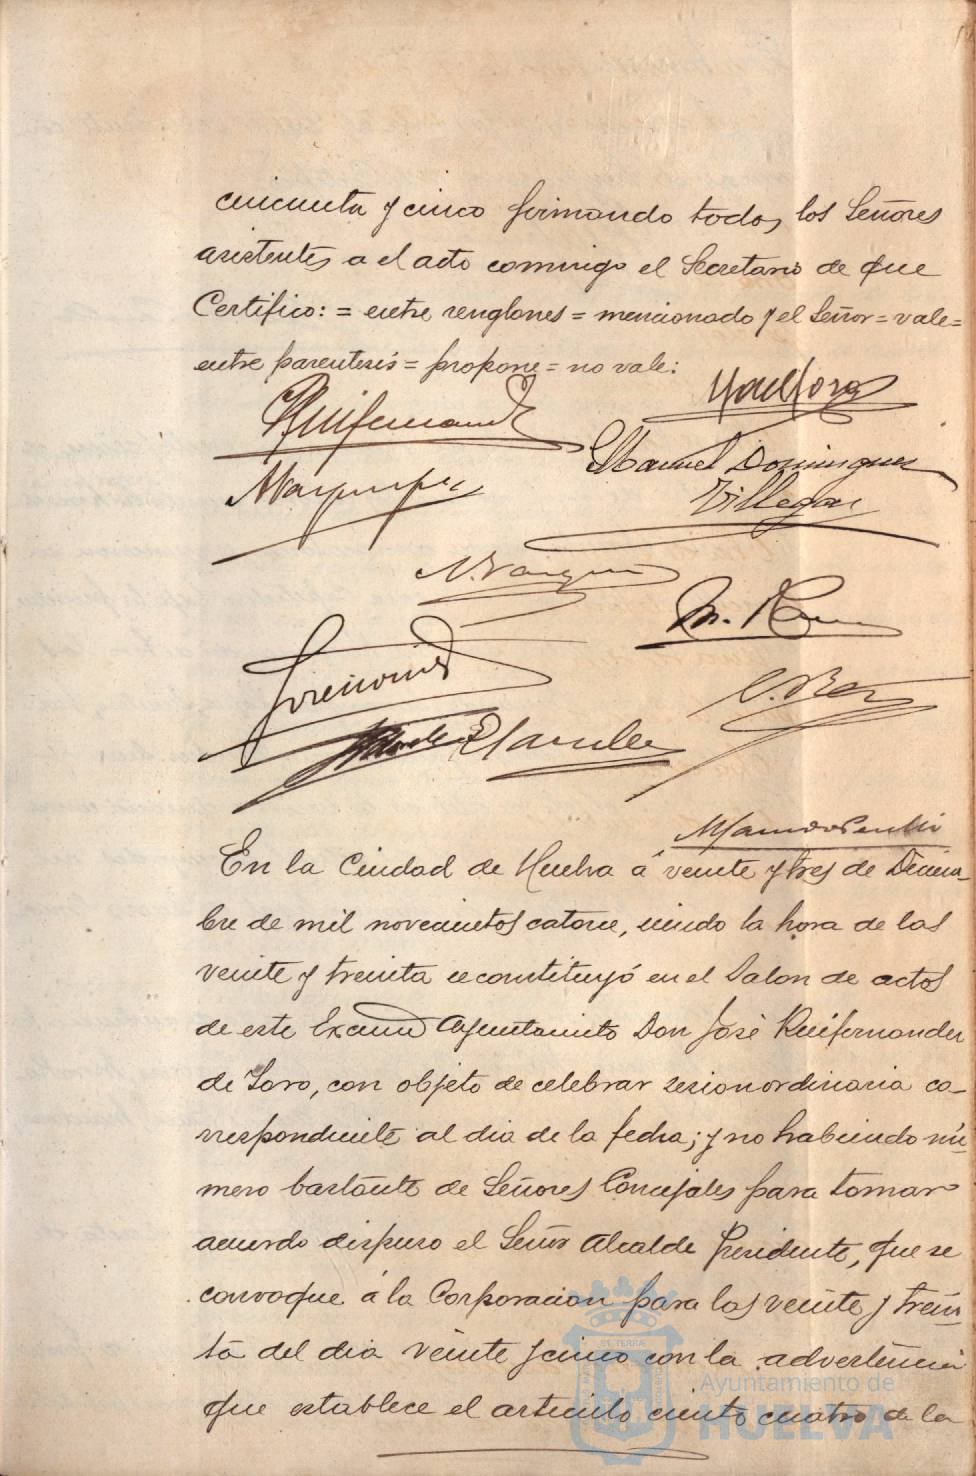 cincuenta y cinco firmando todos los Señores
asistentes a el acto conmigo el Secretario de que
Certifico: = entre renglones = mencionado y el Señor = vale =
entre parentesis = propone = no vale:
Ruifernandez
Manuel Dominguez
Villegas
N. Vazquez
En la Ciudad de Huelva á veinte y tres de Diciem-
bre de mil novecientos catorce, siendo la hora de las
veinte y treinta se constituyó en el Salon de actos
de este Excmo Ayuntamiento Don José Ruifernandez
de Toro, con objeto de celebrar sesion ordinaria co-
rrespondiente al dia de la fecha; y no habiendo nú-
mero bastante de Señores Concejales para tomar
acuerdo dispuso el Señor Alcalde Presidente, que se
convoque á la Corporacion para las veinte y trein-
ta del dia veinte y cinco con la advertencia
que establece el articulo ciento cuatro de la
Ayuntamiento de
HUELVA